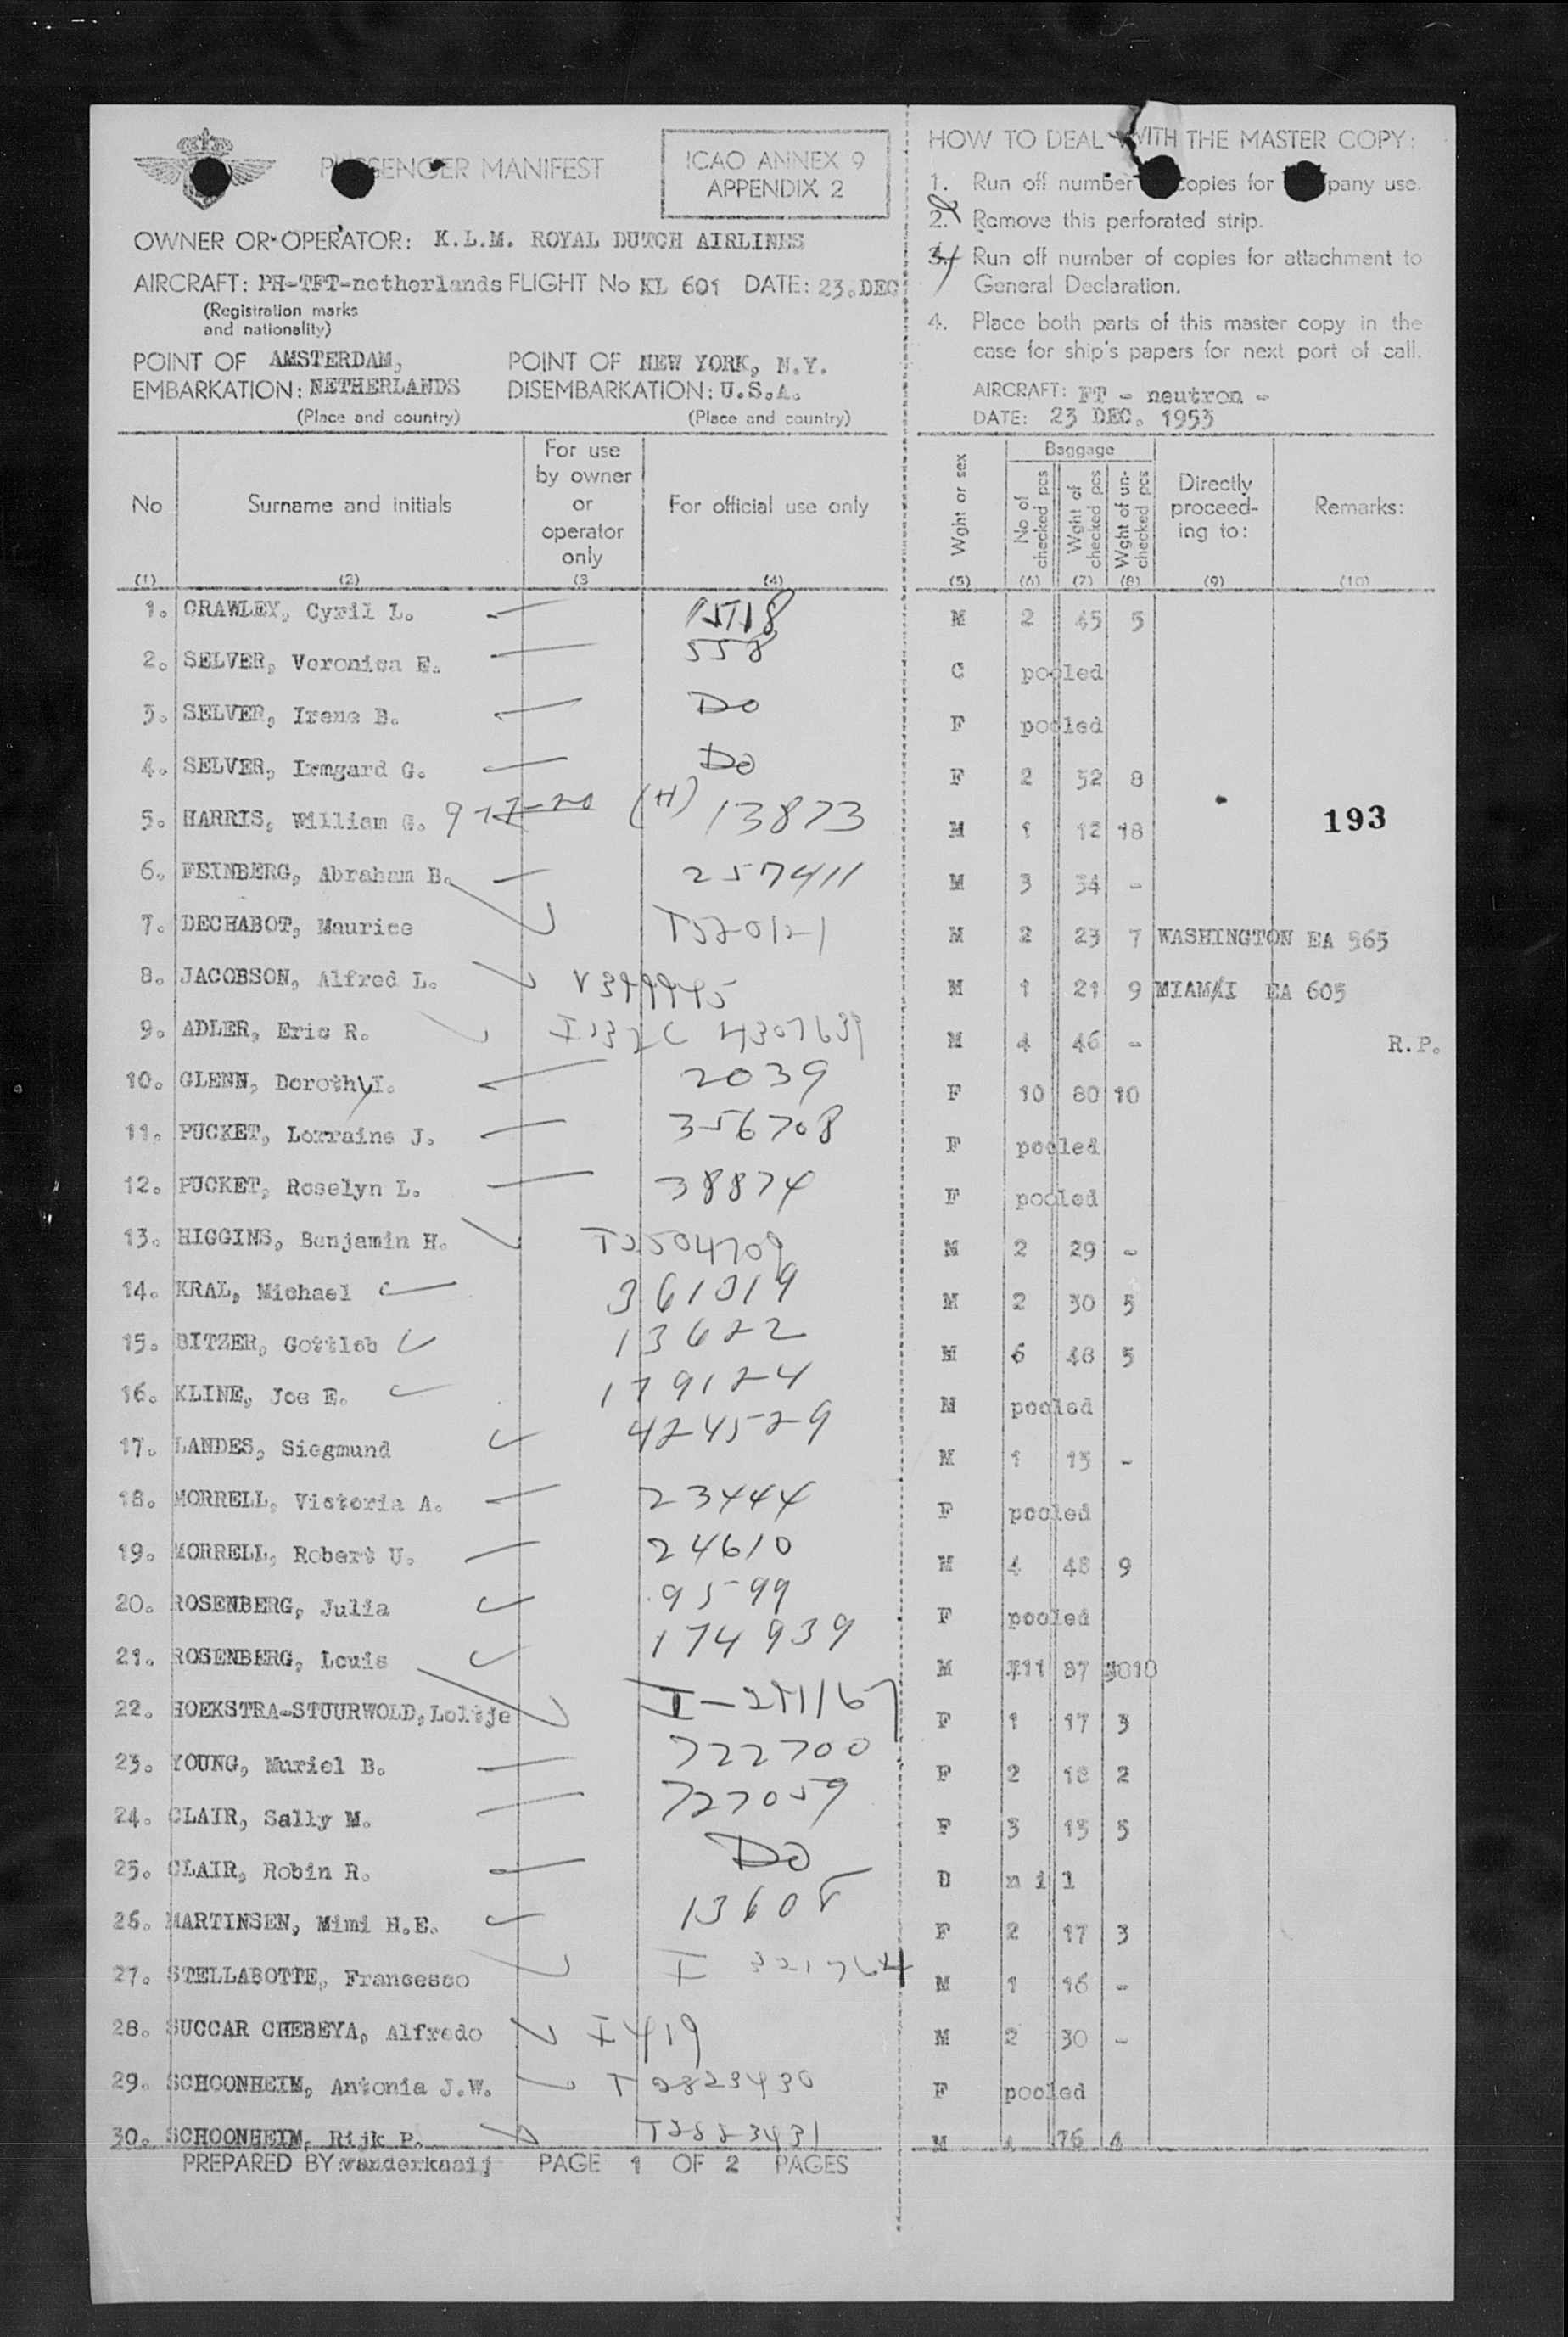 PASSENGER MANIFEST
ICAO ANNEX 9
APPENDIX 2
OWNER OR OPERATOR: K.L.M. ROYAL DUTCH AIRLINES
AIRCRAFT: PH-TFT-netherlands FLIGHT No KL 601 DATE: 23.DEC
(Registration marks
and nationality)
POINT OF AMSTERDAM, POINT OF NEW YORK, N.Y.
EMBARKATION: NETHERLANDS DISEMBARKATION: U.S.A.
(Place and country) (Place and country)
HOW TO DEAL WITH THE MASTER COPY:
1. Run off number copies for pany use.
2. Remove this perforated strip.
3. Run off number of copies for attachment to
General Declaration.
4. Place both parts of this master copy in the
case for ship's papers for next port of call.
AIRCRAFT: FT - neutron -
DATE: 23 DEC. 1953
No Surname and initials For use by owner or operator only For official use only Wght or sex Baggage No of checked pcs Wght of checked pcs Wght of un-checked pcs Directly proceed-ing to: Remarks:
(1) (2) (3 (4) (5) (6) (7) (8) (9) (10)
1. CRAWLEY, Cyril L. M 2 45 5
2. SELVER, Veronica E. 558 C pooled
3. SELVER, Irene B. Do F pooled
4. SELVER, Irmgard G. Do F 2 32 8
5. HARRIS, William G. (H) 13873 M 1 12 18 193
6. FEINBERG, Abraham B. 257411 M 3 34 -
7. DECHABOT, Maurice M 2 23 7 WASHINGTON EA 565
8. JACOBSON, Alfred L. M 1 21 9 MIAMI EA 605
9. ADLER, Eric R. M 4 46 - R.P.
10. GLENN, Dorothy I. 2039 F 10 80 10
11. PUCKET, Lorraine J. 356708 F pooled
12. PUCKET, Roselyn L. 38874 F pooled
13. HIGGINS, Benjamin H. M 2 29 -
14. KRAL, Michael 361319 M 2 30 5
15. BITZER, Gottlob 13622 M 6 48 5
16. KLINE, Joe E. 179124 M pooled
17. LANDES, Siegmund 424529 M 1 15 -
18. MORRELL, Victoria A. 23444 F pooled
19. MORRELL, Robert U. 24610 M 4 48 9
20. ROSENBERG, Julia 9599 F pooled
21. ROSENBERG, Louis 174939 M 11 87 10
22. HOEKSTRA-STUURWOLD, Loltje F 1 17 3
23. YOUNG, Muriel B. 722700 F 2 18 2
24. CLAIR, Sally M. 727059 F 3 15 5
25. CLAIR, Robin R. Do nil
26. MARTINSEN, Mimi H.E. 13608 F 2 17 3
27. STELLABOTTE, Francesco M 1 16 -
28. SUCCAR CHEBEYA, Alfredo I 419 M 2 30 -
29. SCHOONHEIM, Antonia J.W. T 2823430 F pooled
30. SCHOONHEIM, Rijk P. T2823431 M 4 76 4
PREPARED BY: vanderkaaij PAGE 1 OF 2 PAGES